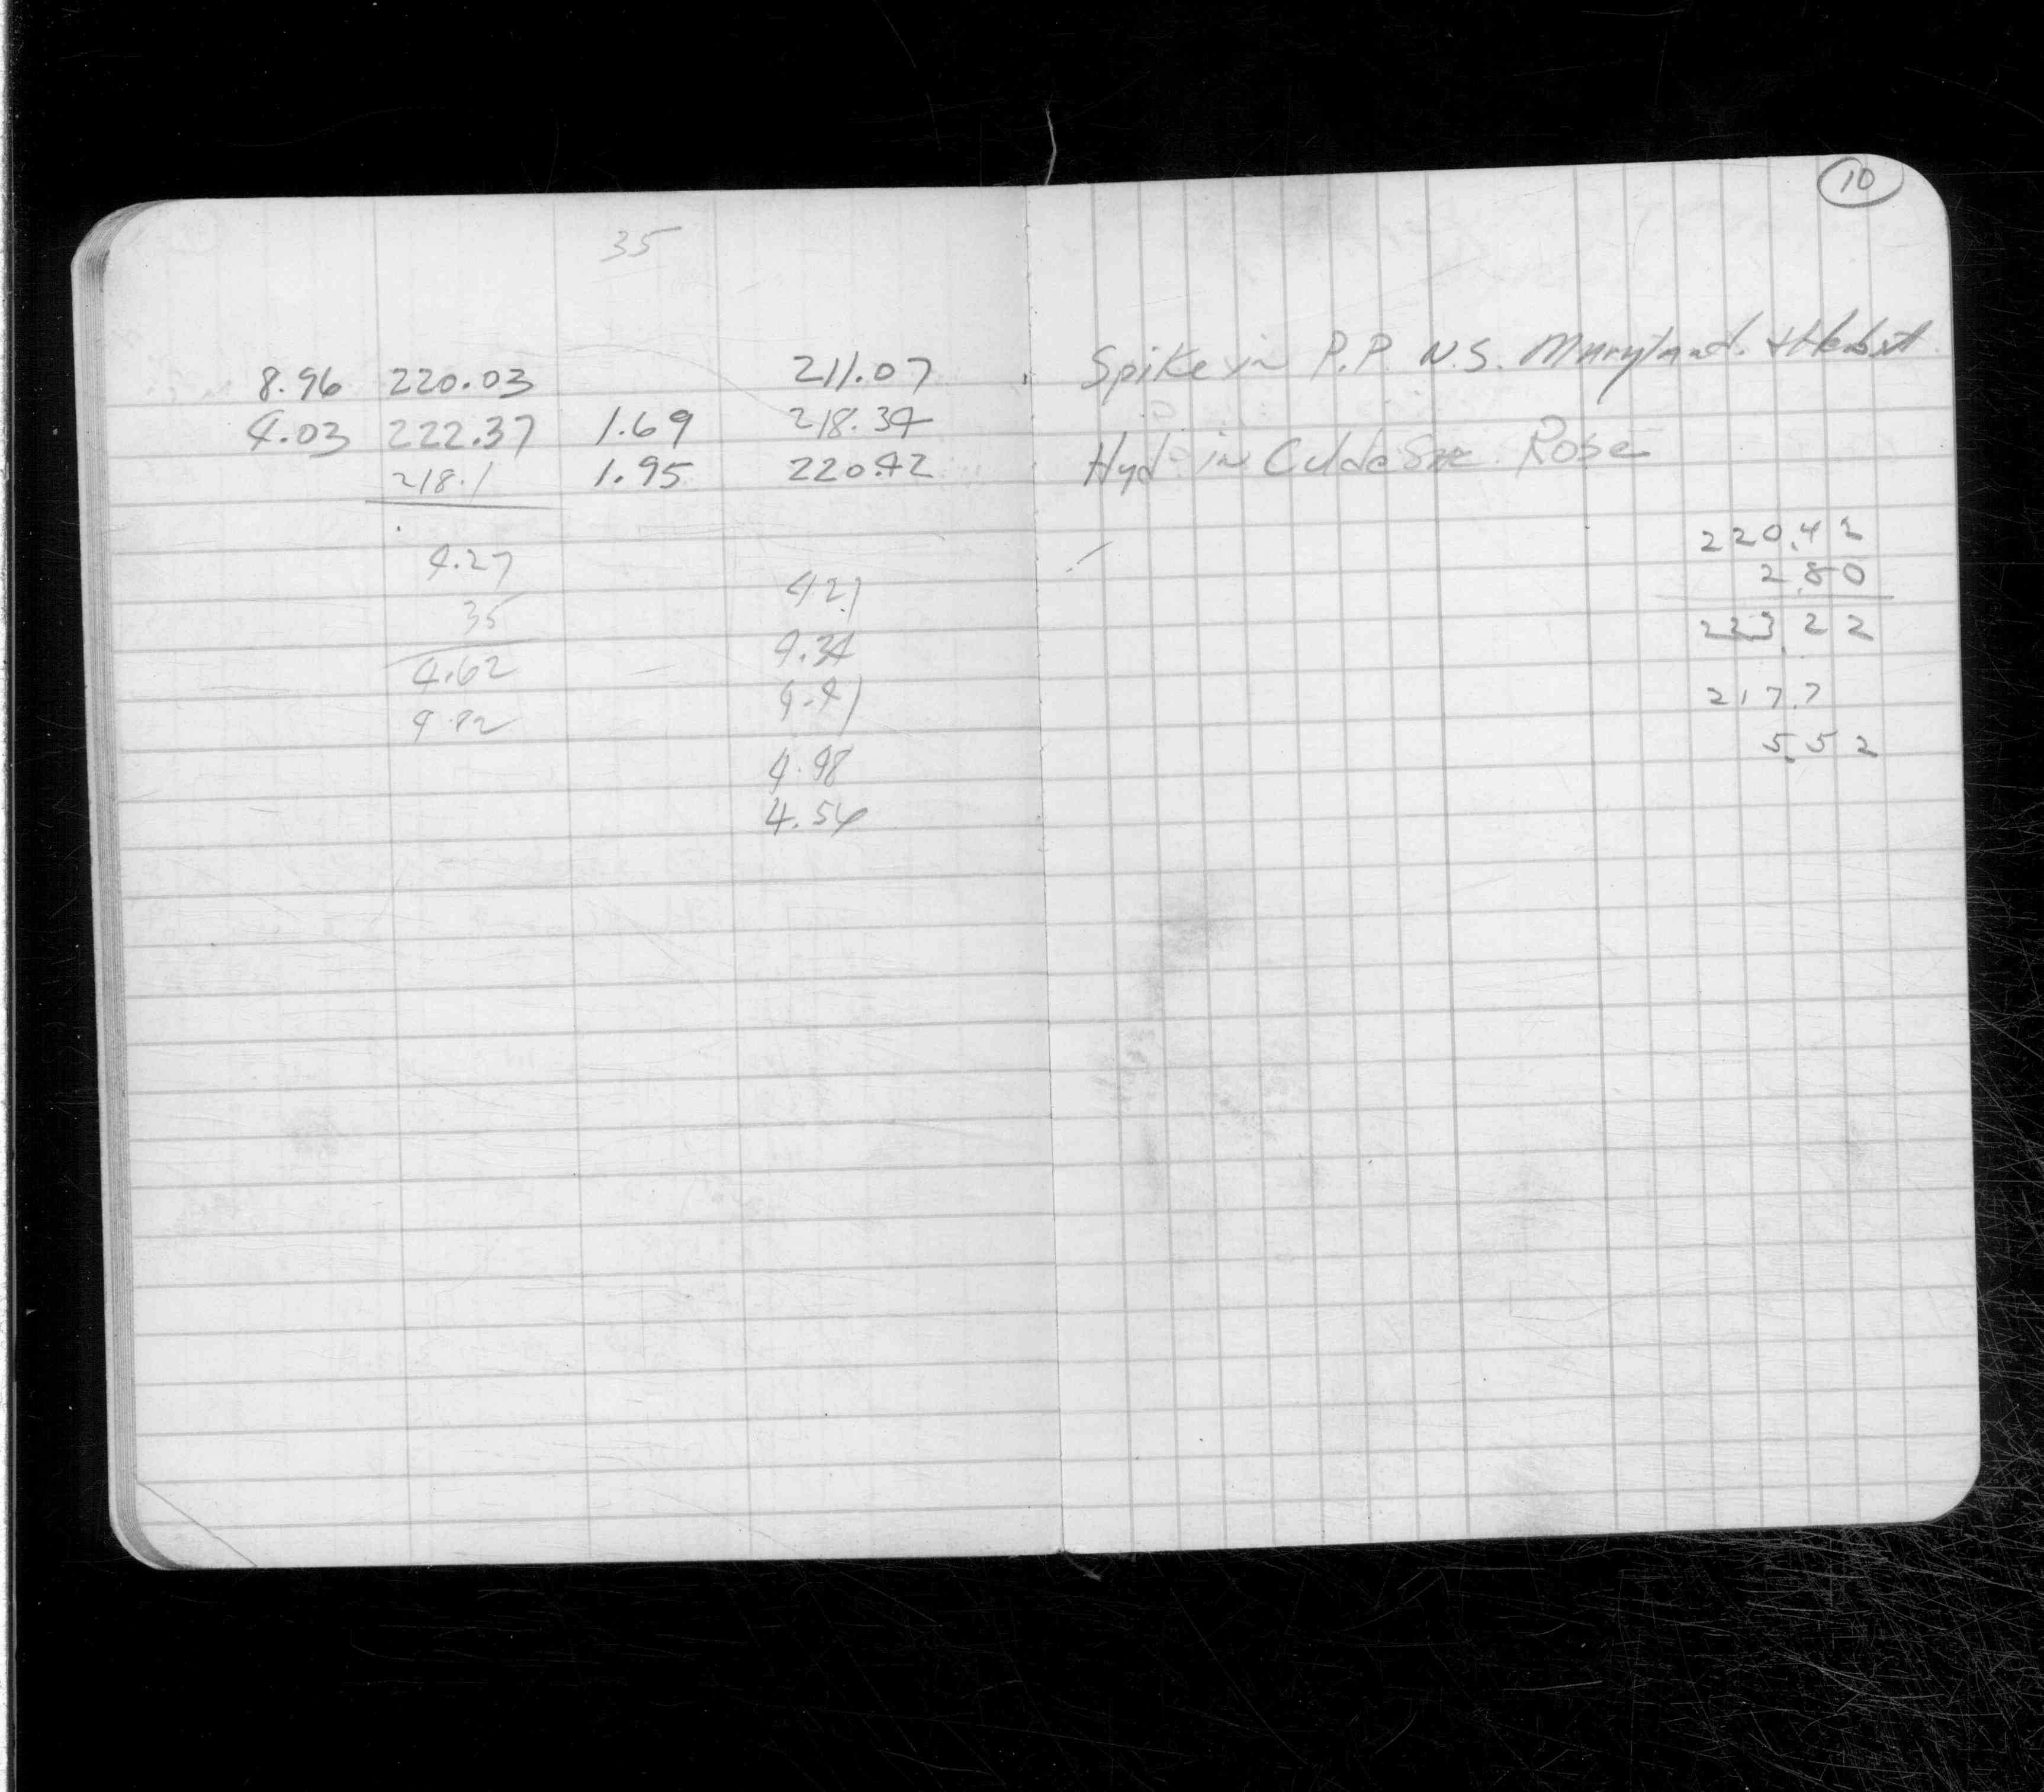 35
8.96 220.03 211.07
4.03 222.37 1.69 218.34
218.1 1.95 220.42
4.27
35
4.62
4.82
4.21
4.34
4.41
4.48
4.54
10
Spike in P.P. N.S. Maryland. +
Hyd in Culdesac Rose
220.42
2.80
223.22
217.7
5.52